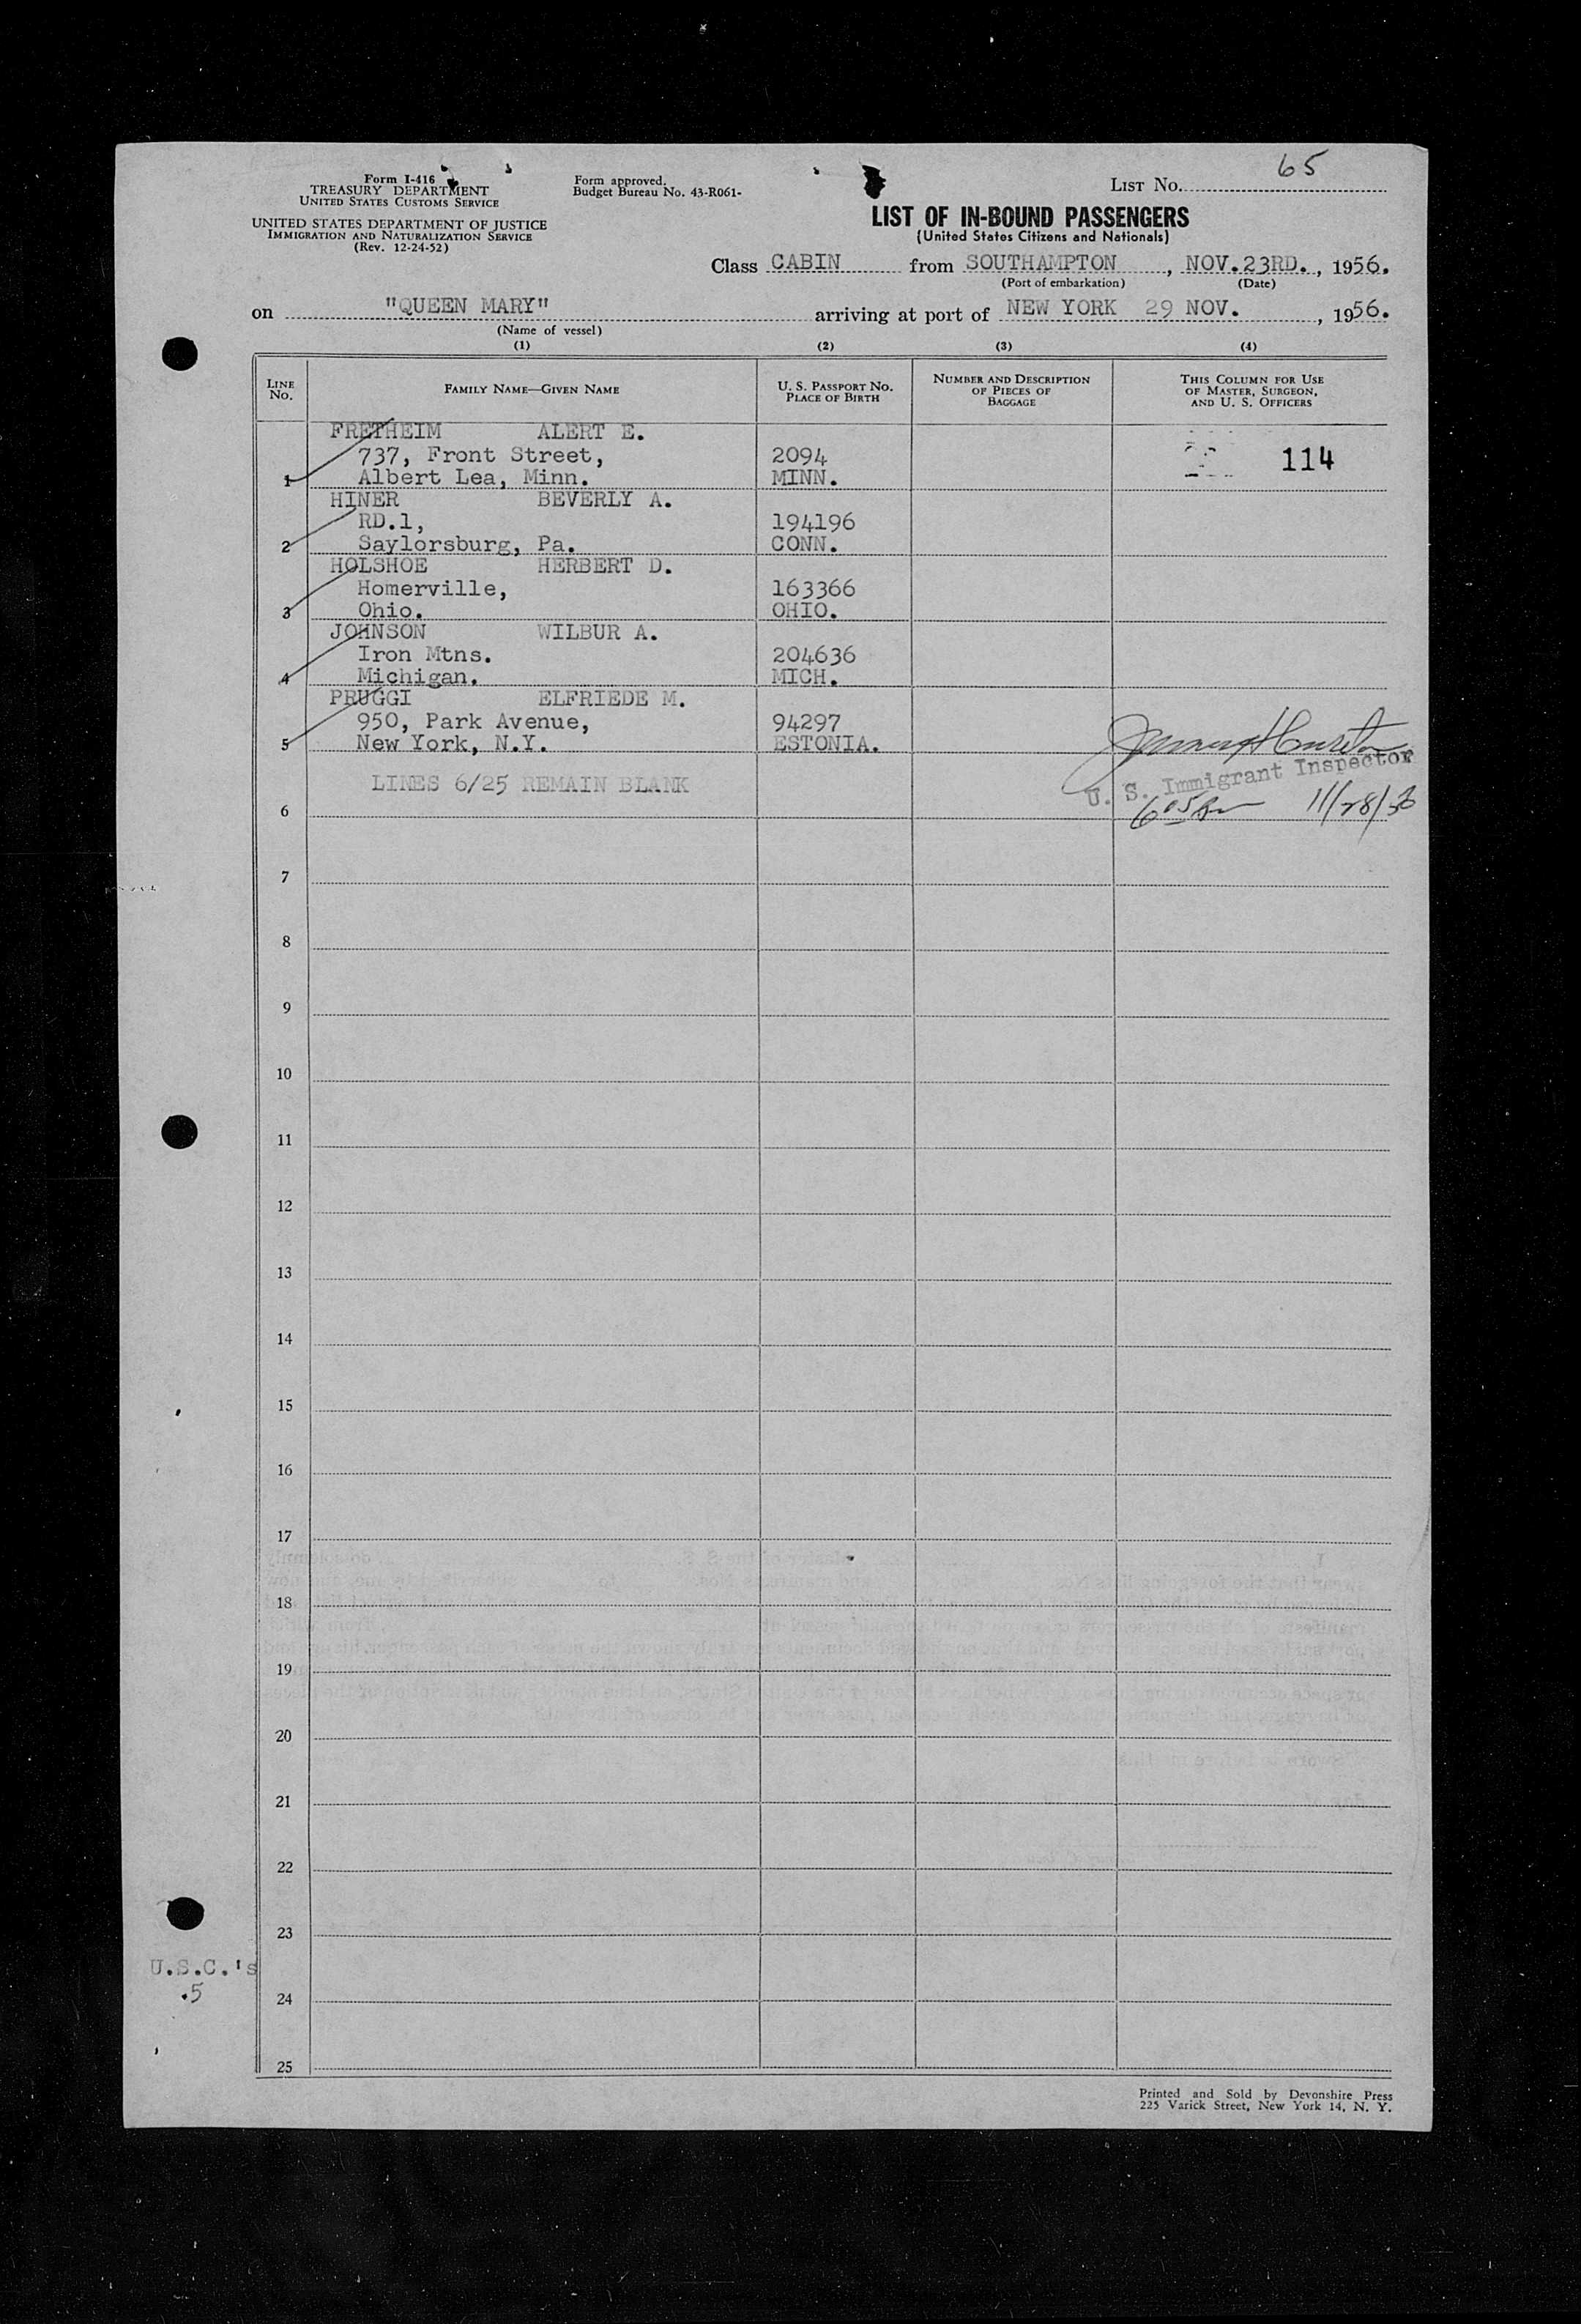 65
Form I-416
TREASURY DEPARTMENT
UNITED STATES CUSTOMS SERVICE
UNITED STATES DEPARTMENT OF JUSTICE
IMMIGRATION AND NATURALIZATION SERVICE
(Rev. 12-24-52)
Form approved.
Budget Bureau No. 43-R061-
LIST No.
LIST OF IN-BOUND PASSENGERS
(United States Citizens and Nationals)
Class CABIN from SOUTHAMPTON , NOV.23RD. , 1956.
(Port of embarkation) (Date)
on "QUEEN MARY" arriving at port of NEW YORK 29 NOV. , 1956.
(Name of vessel)
(1) (2) (3) (4)
LINE No.
FAMILY NAME—GIVEN NAME
U. S. PASSPORT No.
PLACE OF BIRTH
NUMBER AND DESCRIPTION
OF PIECES OF
BAGGAGE
THIS COLUMN FOR USE
OF MASTER, SURGEON,
AND U. S. OFFICERS
FRETHEIM ALERT E.
737, Front Street, 2094 114
1 Albert Lea, Minn. MINN.
HINER BEVERLY A.
RD.1, 194196
2 Saylorsburg, Pa. CONN.
HOLSHOE HERBERT D.
Homerville, 163366
3 Ohio. OHIO.
JOHNSON WILBUR A.
Iron Mtns. 204636
4 Michigan. MICH.
PRUGGI ELFRIEDE M.
950, Park Avenue, 94297
5 New York, N.Y. ESTONIA.
LINES 6/25 REMAIN BLANK
U. S. Immigrant Inspector
6 11/28/56
7
8
9
10
11
12
13
14
15
16
17
18
19
20
21
22
23
U.S.C.'s
.5
24
25
Printed and Sold by Devonshire Press
225 Varick Street, New York 14, N. Y.